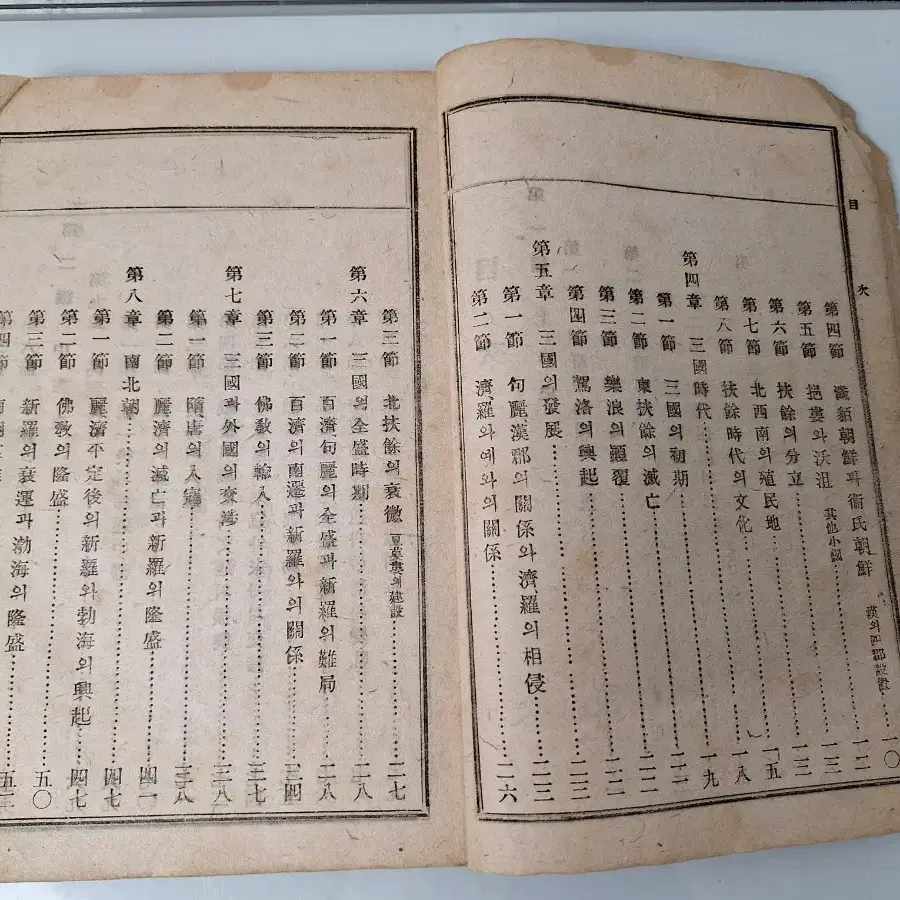 目次
第四節 濊貊朝鮮과衛氏朝鮮 漢의四郡設置 一〇
第五節 挹婁와沃沮 其他小國 一二
第六節 扶餘의分立 一三
第七節 北西南의殖民地 一五
第八節 扶餘時代의文化 一八
第四章 三國時代 一九
第一節 三國의初期
第二節 東扶餘의滅亡
第三節 樂浪의顚覆
第四節 駕洛의興起
第五章 三國의發展
第一節 句麗漢郡의關係와濟羅의相侵 二三
第二節 濟羅와예와의關係 二六
第三節 北扶餘의衰微 의建設 二七
第六章 三國의全盛時期 二八
第一節 百濟句麗의全盛과新羅의難局 二八
第二節 百濟의南遷과新羅와의關係 三四
第三節 佛敎의輸入 三七
第七章 三國과外國의交涉 三八
第一節 隋唐의入寇 三八
第二節 麗濟의滅亡과新羅의隆盛 四一
第八章 南北朝 四七
第一節 麗濟平定後의新羅와勃海의興起 四七
第二節 佛敎의隆盛 五〇
第三節 新羅의衰運과勃海의隆盛
第四節